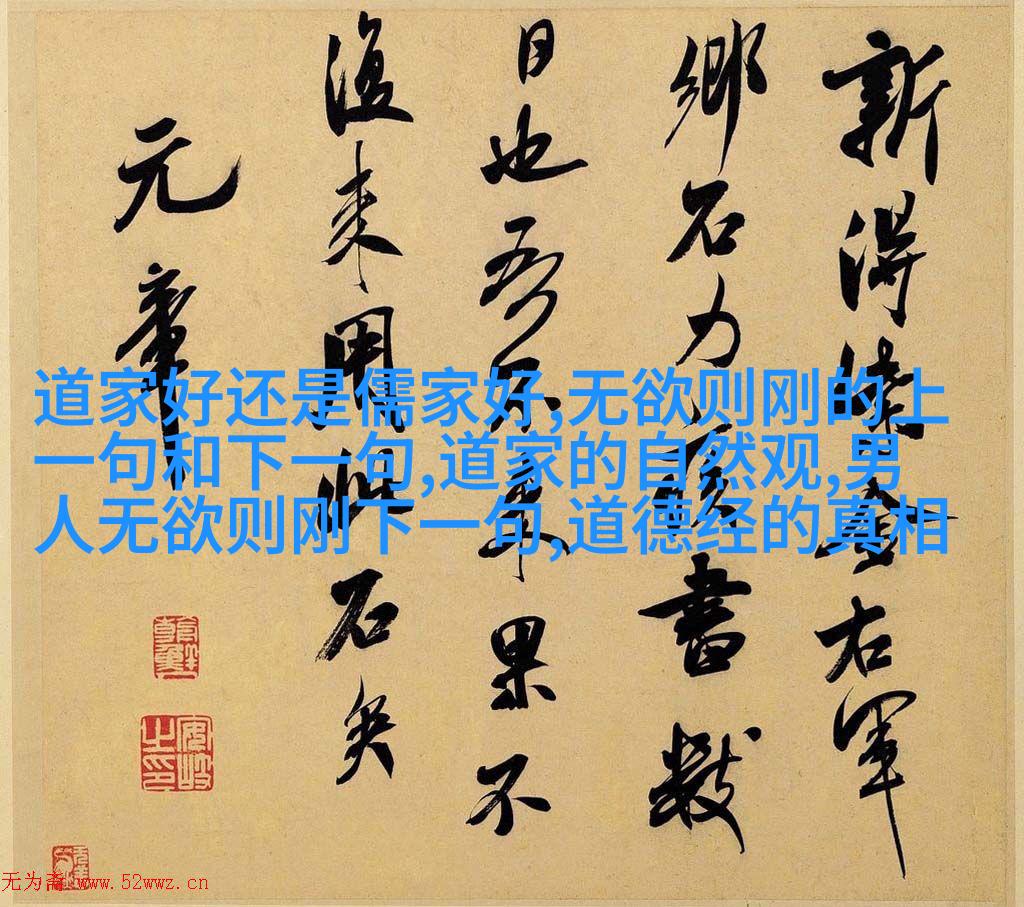 新得紫金右軍
鄉石力疾書數
日也吾不来果不
復来用此石矣
元章
道家好还是儒家好,无欲则刚的上
一句和下一句,道家的自然观,男
人无欲则刚下一句,道德经的真相
安岐之印
无为斋 www.52wwz.cn